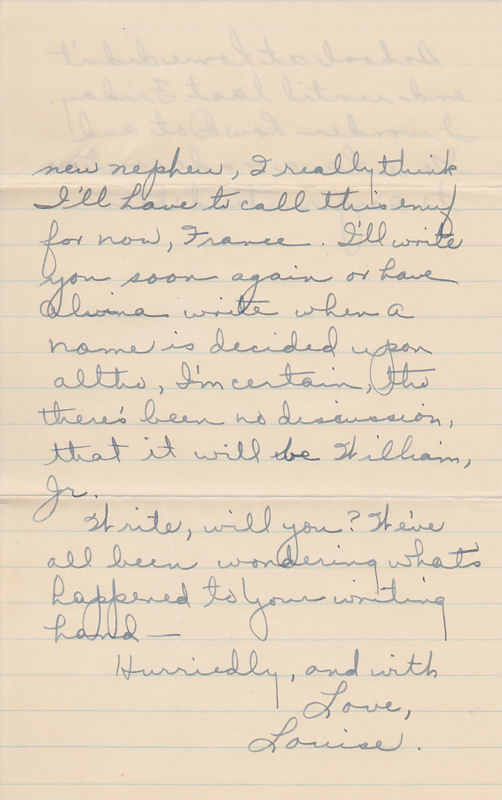 new nephew, I really think
I'll have to call this enuf
for now, France. I'll write
you soon again or have
Alvina write when a
name is decided upon
altho, I'm certain, tho
there's been no discussion,
that it will be William,
Jr.
Write, will you? We've
all been wondering what's
happened to your writing
hand—
Hurriedly, and with
Love,
Louise.